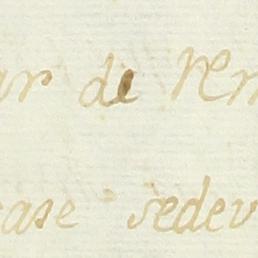 ar de rem
case sedev